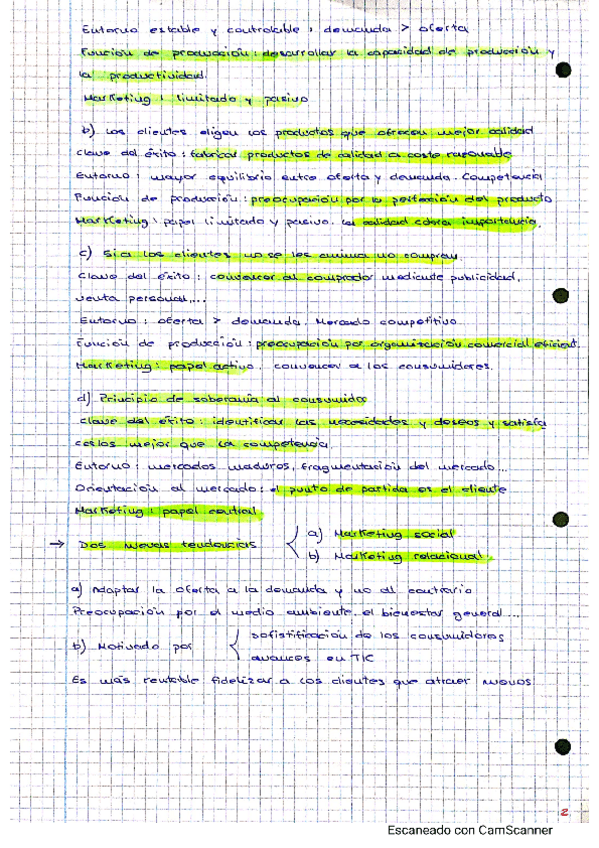 Entorno estable y controlable: demanda > oferta
Función de producción: desarrollar la capacidad de producción y
la productividad.
Marketing: limitado y pasivo
b) Los clientes eligen los productos que ofrecen mejor calidad
Clave del éxito: fabricar productos de calidad a coste razonable
Entorno: mayor equilibrio entre oferta y demanda. Competencia
Función de producción: preocupación por la perfección del producto
Marketing: papel limitado y pasivo. La calidad cobra importancia.
c) Si a los clientes no se les anima no compran.
Clave del éxito: convencer al comprador mediante publicidad,
venta personal,...
Entorno: oferta > demanda. Mercado competitivo.
Función de producción: preocupación por organización comercial eficient.
Marketing: papel activo. convencer a los consumidores.
d) Principio de soberanía al consumidor
Clave del éxito: identificar las necesidades y deseos y satisfa
cerlos mejor que la competencia.
Entorno: mercados maduros, fragmentación del mercado...
Orientación al mercado: el punto de partida es el cliente
Marketing: papel central
→ Dos nuevas tendencias
a) Marketing social
b) Marketing relacional.
a) Adaptar la oferta a la demanda y no al contrario
Preocupación por el medio ambiente, el bienestar general...
b) Motivado por
sofistificación de los consumidores
avances en TIC
Es más rentable fidelizar a los clientes que atraer nuevos
2
Escaneado con CamScanner